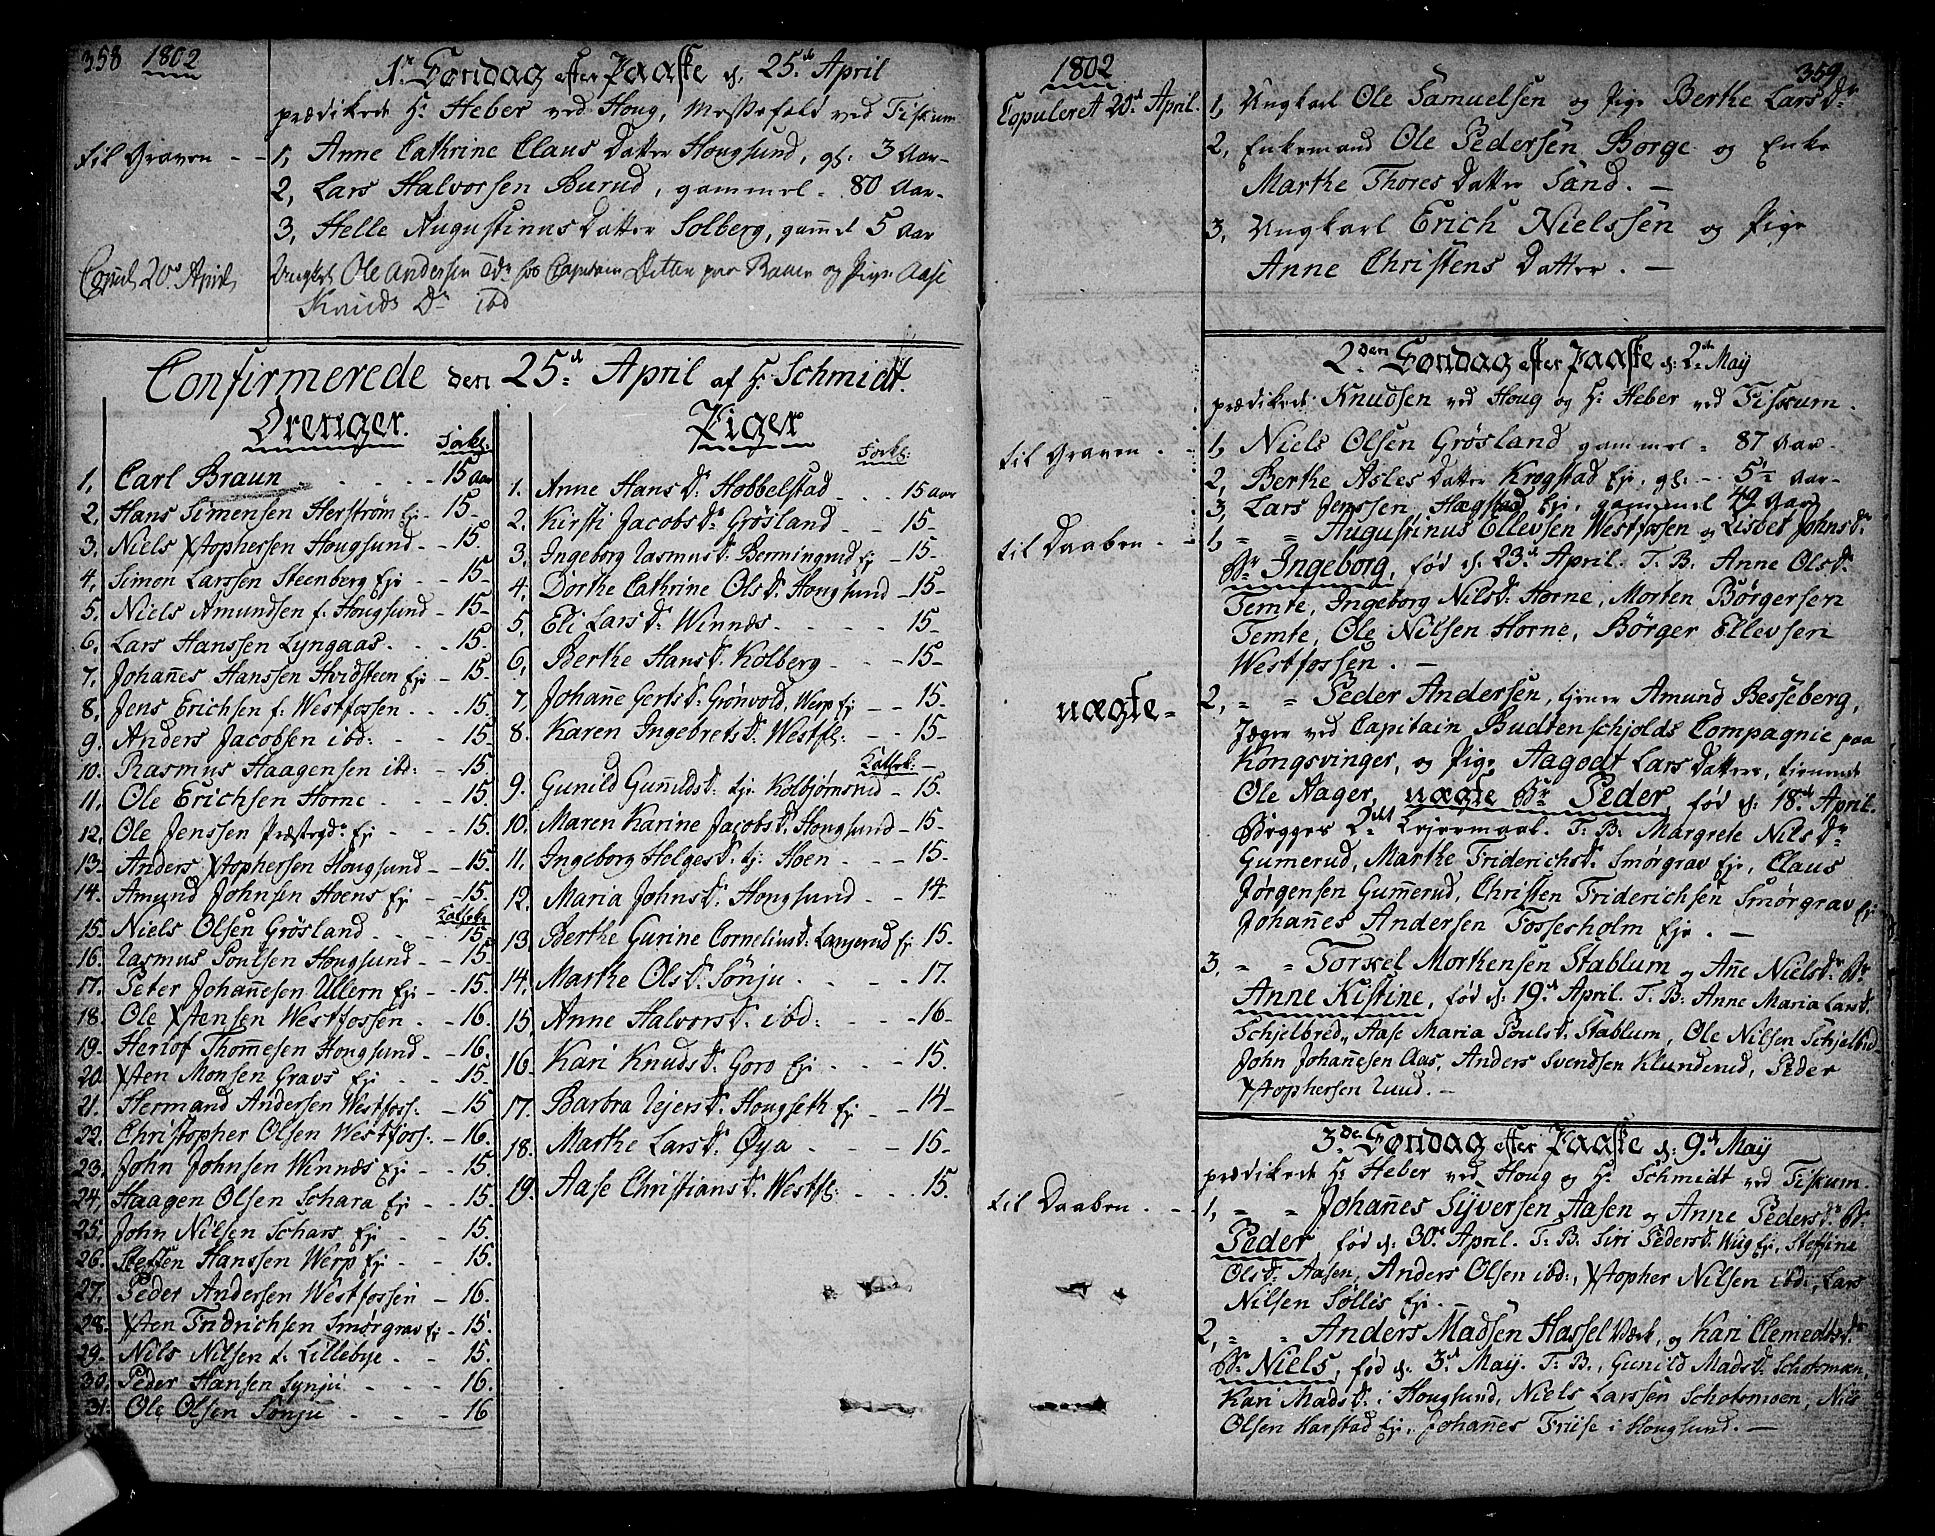 358 1802
1ste Søndag efter Paaske d. 25de April
prædikede Hr Heber ved Houg, Messefald ved Fiskum
til Graven - - 1, Anne Cathrine Claus Datter Hougsund, gl: 3 Aar-
2, Lars Halvorssen Burud, gammel - 80 Aar-
3, Helle Augustinus Datter Solberg, gamel 5 Aar
Copul. 20de April Ungkarl Ole Andersen og Pige Aase
Knuds Dr ibd
Confirmerede den 25de April af Hr Schmidt.
Drenger. Forkl:
1, Carl Braun - - - 15 Aar
2. Hans Simensen Herstrøm Ej - 15-
3. Niels Xtophersen Hougsund - - 15
4, Simon Larssen Steenberg Eje - - 15-
5. Niels Amundsen f. Hougsund - 15-
6. Lars Hanssen Lyngaas - - 15.
7, Johañes Hanssen Hvidsteen Eje - 15-
8, Jens Erichsen f: Westfossen - - 15.
9. Anders Jacobsen ibd: - - 15-
10. Rasmus Haagensen ibd: - 15-
11. Ole Erichsen Horne - - 15.
12. Ole Jenssen Præstegds Ej - - 15.
13- Anders Xtophersen Hougsund - - 15.
14. Amund Johnsen Hoens Ej - - 15.
15. Niels Olsen Grøsland - - 15
16. Rasmus Poulsen Hougsund - - 15.
17. Peter Johañesen Ullern Ej - - 15.
18. Ole Xtensen Westfossen - - 16.
19- Herlof Thomesen Hougsund - - 16.
20. Xten Monsen Gravs Ej - - 15-
21. Hermand Andersen Westfoss: - 15
22. Christopher Olsen Westfoss: - 16.
23. John Johnsen Winnæs Ej - - 15.
24, Haagen Olsen Schara Ej - - 15.
25. John Nilsen Schars Ej - - 15.
26. Steffen Hanssen Werp Ej - - 15.
27. Peder Andersen Westfossen - 16.
28. Xten Fridrichsen Smørgrav Ej - 15.
29. Nils Nilsen f: Lillebye - - 15.
30. Peder Hansen Synju - - - 16.
31. Ole Olsen Sønju - - - 16
Piger Forkl:
1. Anne Hans Dr Hobbelstad - - - 15 aar
2. Kirsti Jacobs Dr Grøsland - - 15-
3. Ingeborg Rasmus Dr Bermingrud Ej - 15-
4. Dorthe Cathrine Ols Dr Hougsund - 15-
5, Eli Lars Dr Winnæs - - - 15-
6, Berthe Hans Dr Kolberg - - - 15-
7, Johañe Gerts Dr Grønvold, Werp Ej - - 15-
8. Karen Ingebrets Dr Westfs: - - 15-
9. Gunild Guñulds Dr tj: Kolbjørnsrud - 15.
10. Maren Karine Jacobs Dr Hougsund - 15-
11, Ingeborg Helges Dr tj: Hoen - - - 15-
12. Maria Johns Dr Hougsund - - 14-
13. Berthe Gurine Cornelius Dr Langerud Ej 15.
14. Marthe Ols Dr Sønju - - - 17.
15. Anne Halvors Dr ibd: - - - 16-
16. Kari Knuds Dr Goro Ej - - - 15.
17. Barbra Rejers Dr Hougseth Ej - - 14-
18. Marthe Lars Dr Øya - - - 15-
19. Aase Christians Dr Westfs: - - - 15.
1802 359
Copuleret 20de April. 1, Ungkarl Ole Samuelsen og Pige Berthe Lars Dr
2, Enkemand Ole Pedersen Borge og Enke
Marthe Thores Datter Sand. -
3, Ungkarl Erich Nielssen og Pige
Anne Christens Datter. -
2den Søndag efter Paaske d: 2de May
prædikede Knudsen ved Houg og Hr Heber ved Fiskum.
til Graven - 1, Niels Olsen Grøsland gammel - 87 Aar-
2, Berthe Asles Datter Krogstad Ej, gl: - 5½ Aar-
3, Lars Jenssen Hægstad Ej, gammel 49 Aar
til Daaben - 1, " " Augustinus Ellevsen Westfossen og Lisbet Johns Dr
Br Ingeborg, fød d. 23de April. T. B. Anne Ols Dr
Temte, Ingeborg Nils Dr Horne, Morten Børgersen
Temte, Ole Nilsen Horne, Børger Ellevsen
Westfossen. -
uægte - 2, " " Peder Andersen, tjener Amund Besseberg,
Jæger ved Capitain Budtenschjolds Compagnie paa
Kongsvinger, og Pige Aagodt Lars Datter, tienende
Ole Aager, uægte Br Peder, fød d. 18de April.
Begges 2det Lejermaal. T: B: Margrete Nils Dr
Gumerud, Marthe Friderichs Dr Smørgrav Eje, Claus
Jørgensen Gum̃erud, Christen Friderichsen Smørgrav Ej
Johañes Andersen Fossesholm Eje. -
3, " " Torkel Morthensen Stablum og Añe Niels Dr Br
Anne Kistine, fød d. 19de April. T. B: Anne Maria Lars Dr
Schjelbred, Aase Maria Pouls Dr Stablum, Ole Nilsen Schjelbred
John Johañesen Aas, Anders Svendsen Klunderud, Peder
Xtophersen Ruud. -
3de Søndag efter Paaske d. 9de May
prædikede Hr Heber ved Houg og Hr Schmidt ved Fiskum.
til Daaben - - 1, " " Johañes Syversen Aasen og Anne Peders Dr Br
Peder, fød d. 30de April. T. B. Siri Peders Dr Wiig Ej, Steffine
Ols Dr Aasen, Anders Olsen ibd:, Xtopher Nilsen ibd:, Lars
Nilsen Sølles Eje. -
2, " " Anders Madsen Hassel Værk, og Kari Clemedts Dr
Br Niels, fød d. 3de May. T. B., Gunild Mads Dr Schotsmoen,
Kari Mads Dr i Hougsund, Niels Larssen Schotsmoen, Nils
Olsen Harstad Eje, Johañes Friise i Hougsund. -